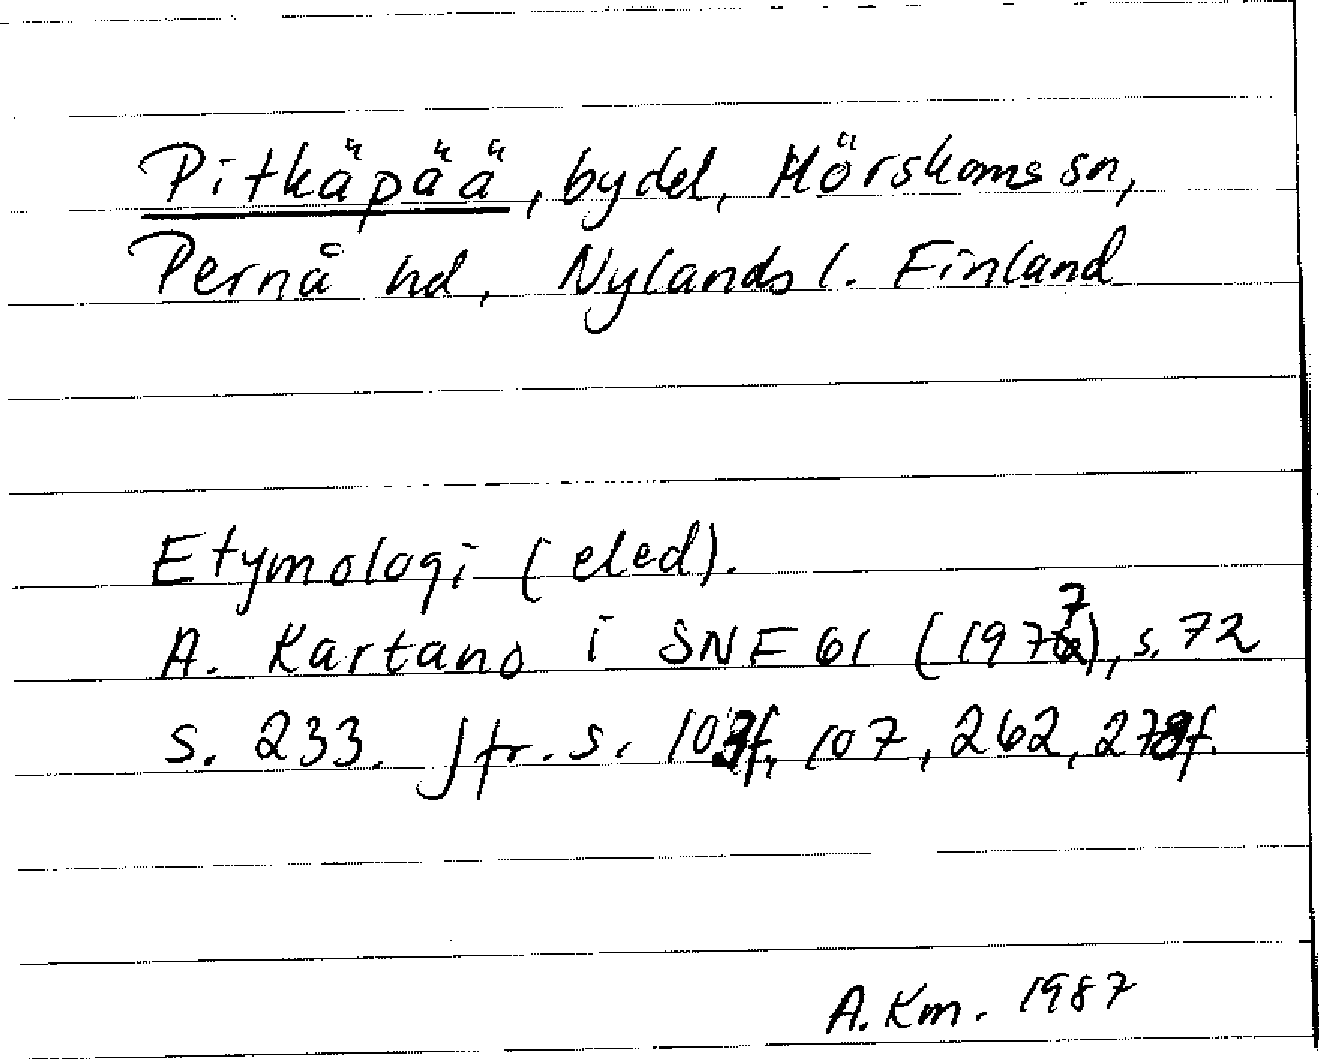 Pitkäpää, bydel, Mörskoms sn,
Pernå hd, Nylands l. Finland
Etymologi (eled).
A. Kartano i SNF 61 (1977), s. 72
s. 233. Jfr. s. 103f, 107, 262, 278f.
A. Km. 1987